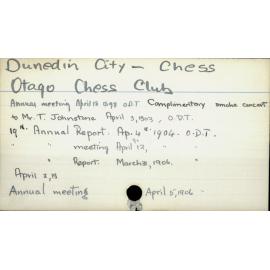 Dunedin City - Chess
Otago Chess Club
Annual meeting April 18 O.D.T. Complimentary smoke concert
to Mr. T. Johnstone April 3, 1903, O.D.T.
19th. Annual Report. Ap. 4th. 1904. O.D.T.
" " meeting April 12, " "
" Report. March 31, 1906. "
April 2, 13
Annual meeting April 5, 1906